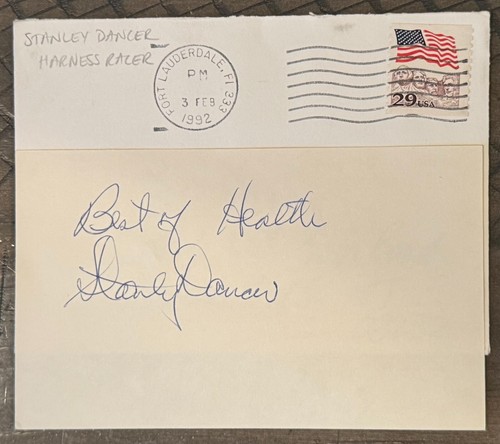 STANLEY DANCER
HARNESS RACER
FORT LAUDERDALE, FL 333
PM
3 FEB
1992
29 USA
Best of Health
Stanley Dancer